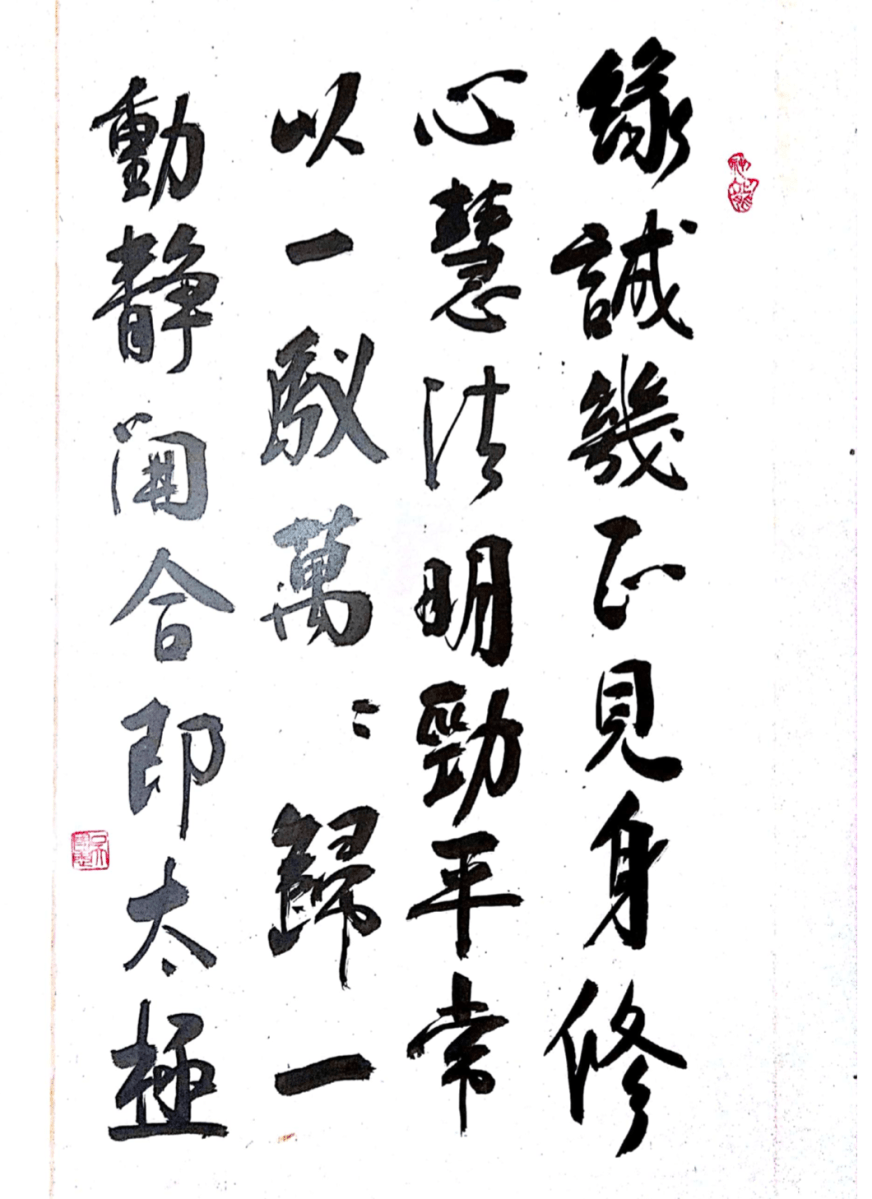 緣誠幾正見身修
心慧法明勁平常
以一馭萬〻歸一
動静開合即太極